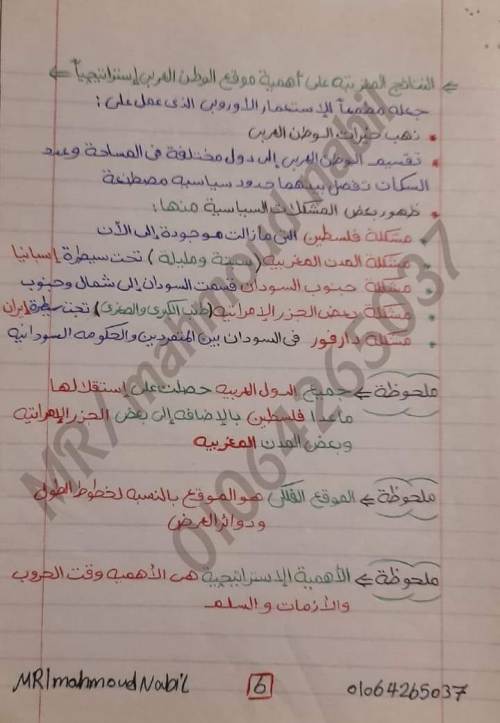 ⇐ النتائج المترتبه على أهمية موقع الوطن العربى إستراتيجياً ⇐
جعله مطمعاً للإستعمار الأوروبى الذى عمل على :
• نهب خيرات الوطن العربى
• تقسيم الوطن العربى إلى دول مختلفة فى المساحة وعدد
السكان تفصل بينهما حدود سياسيه مصطنعة
• ظهور بعض المشكلات السياسية منها :
• مشكلة فلسطين التى مازالت موجودة إلى الآن
• مشكلة المدن المغربيه (سبتة ومليلة) تحت سيطرة إسبانيا
• مشكلة جنوب السودان قسمت السودان إلى شمال وجنوب
• مشكلة بعض الجزر الإمراتيه (طنب الكبرى والصغرى) تحت سيطرة إيران
• مشكلة دارفور فى السودان بين المتمردين والحكومه السودانيه
ملحوظة ⇐ جميع الدول العربيه حصلت على إستقلالها
ماعدا فلسطين بالإضافه إلى بعض الجزر الإمراتيه
وبعض المدن المغربيه
ملحوظة ⇐ الموقع الفلكى هو الموقع بالنسبه لخطوط الطول
ودوائر العرض
ملحوظة ⇐ الأهمية الإستراتيجية هى الأهميه وقت الحروب
والأزمات والسلم
MR/mahmoud Nabil 6 01064265037
MR/mahmoud nabil
01064265037